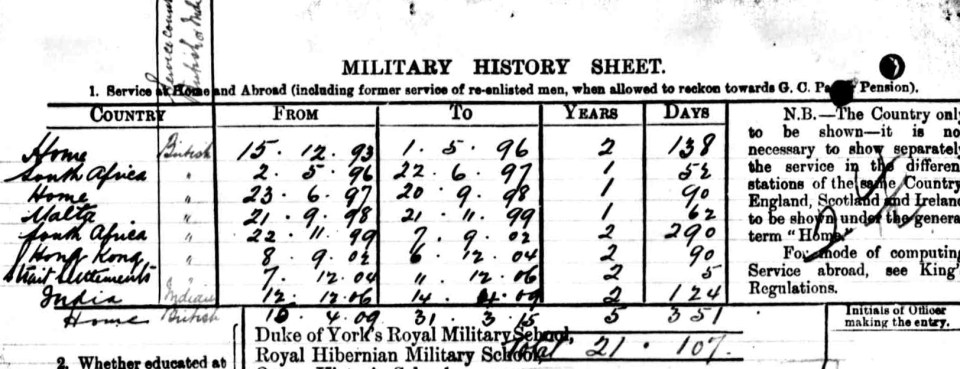 Service Count
British or Ind
MILITARY HISTORY SHEET.
1. Service at Home and Abroad (including former service of re-enlisted men, when allowed to reckon towards G. C. Pay or Pension).
COUNTRY FROM TO YEARS DAYS
Home British 15 . 12 . 93 1 . 5 . 96 2 138
South Africa " 2 . 5 . 96 22 . 6 . 97 1 52
Home " 23 . 6 . 97 20 . 9 . 98 1 90
Malta " 21 . 9 . 98 21 . 11 . 99 1 62
South Africa " 22 . 11 . 99 7 . 9 . 02 2 290
Hong Kong " 8 . 9 . 02 6 . 12 . 04 2 90
Strait Settlements " 7 . 12 . 04 " . 12 . 06 2 5
India Indian 12 . 12 . 06 14 . 4 . 09 2 124
Home British 15 . 4 . 09 31 . 3 . 15 5 351
Total 21 . 107.
N.B.—The Country only
to be shown—it is no
necessary to show separately
the service in the differen
stations of the same Country
England, Scotland and Ireland
to be shown under the genera
term "Home."
For mode of computing
Service abroad, see King'
Regulations.
Initials of Officer
making the entry.
2. Whether educated at
Duke of York's Royal Military School,
Royal Hibernian Military School,